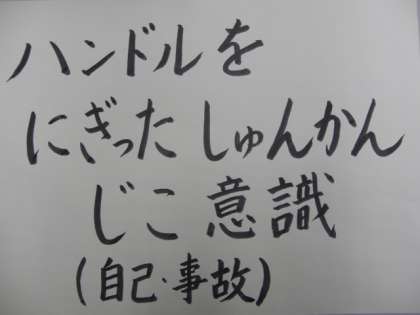 ハンドルを
にぎった しゅんかん
じこ 意識
(自己・事故)